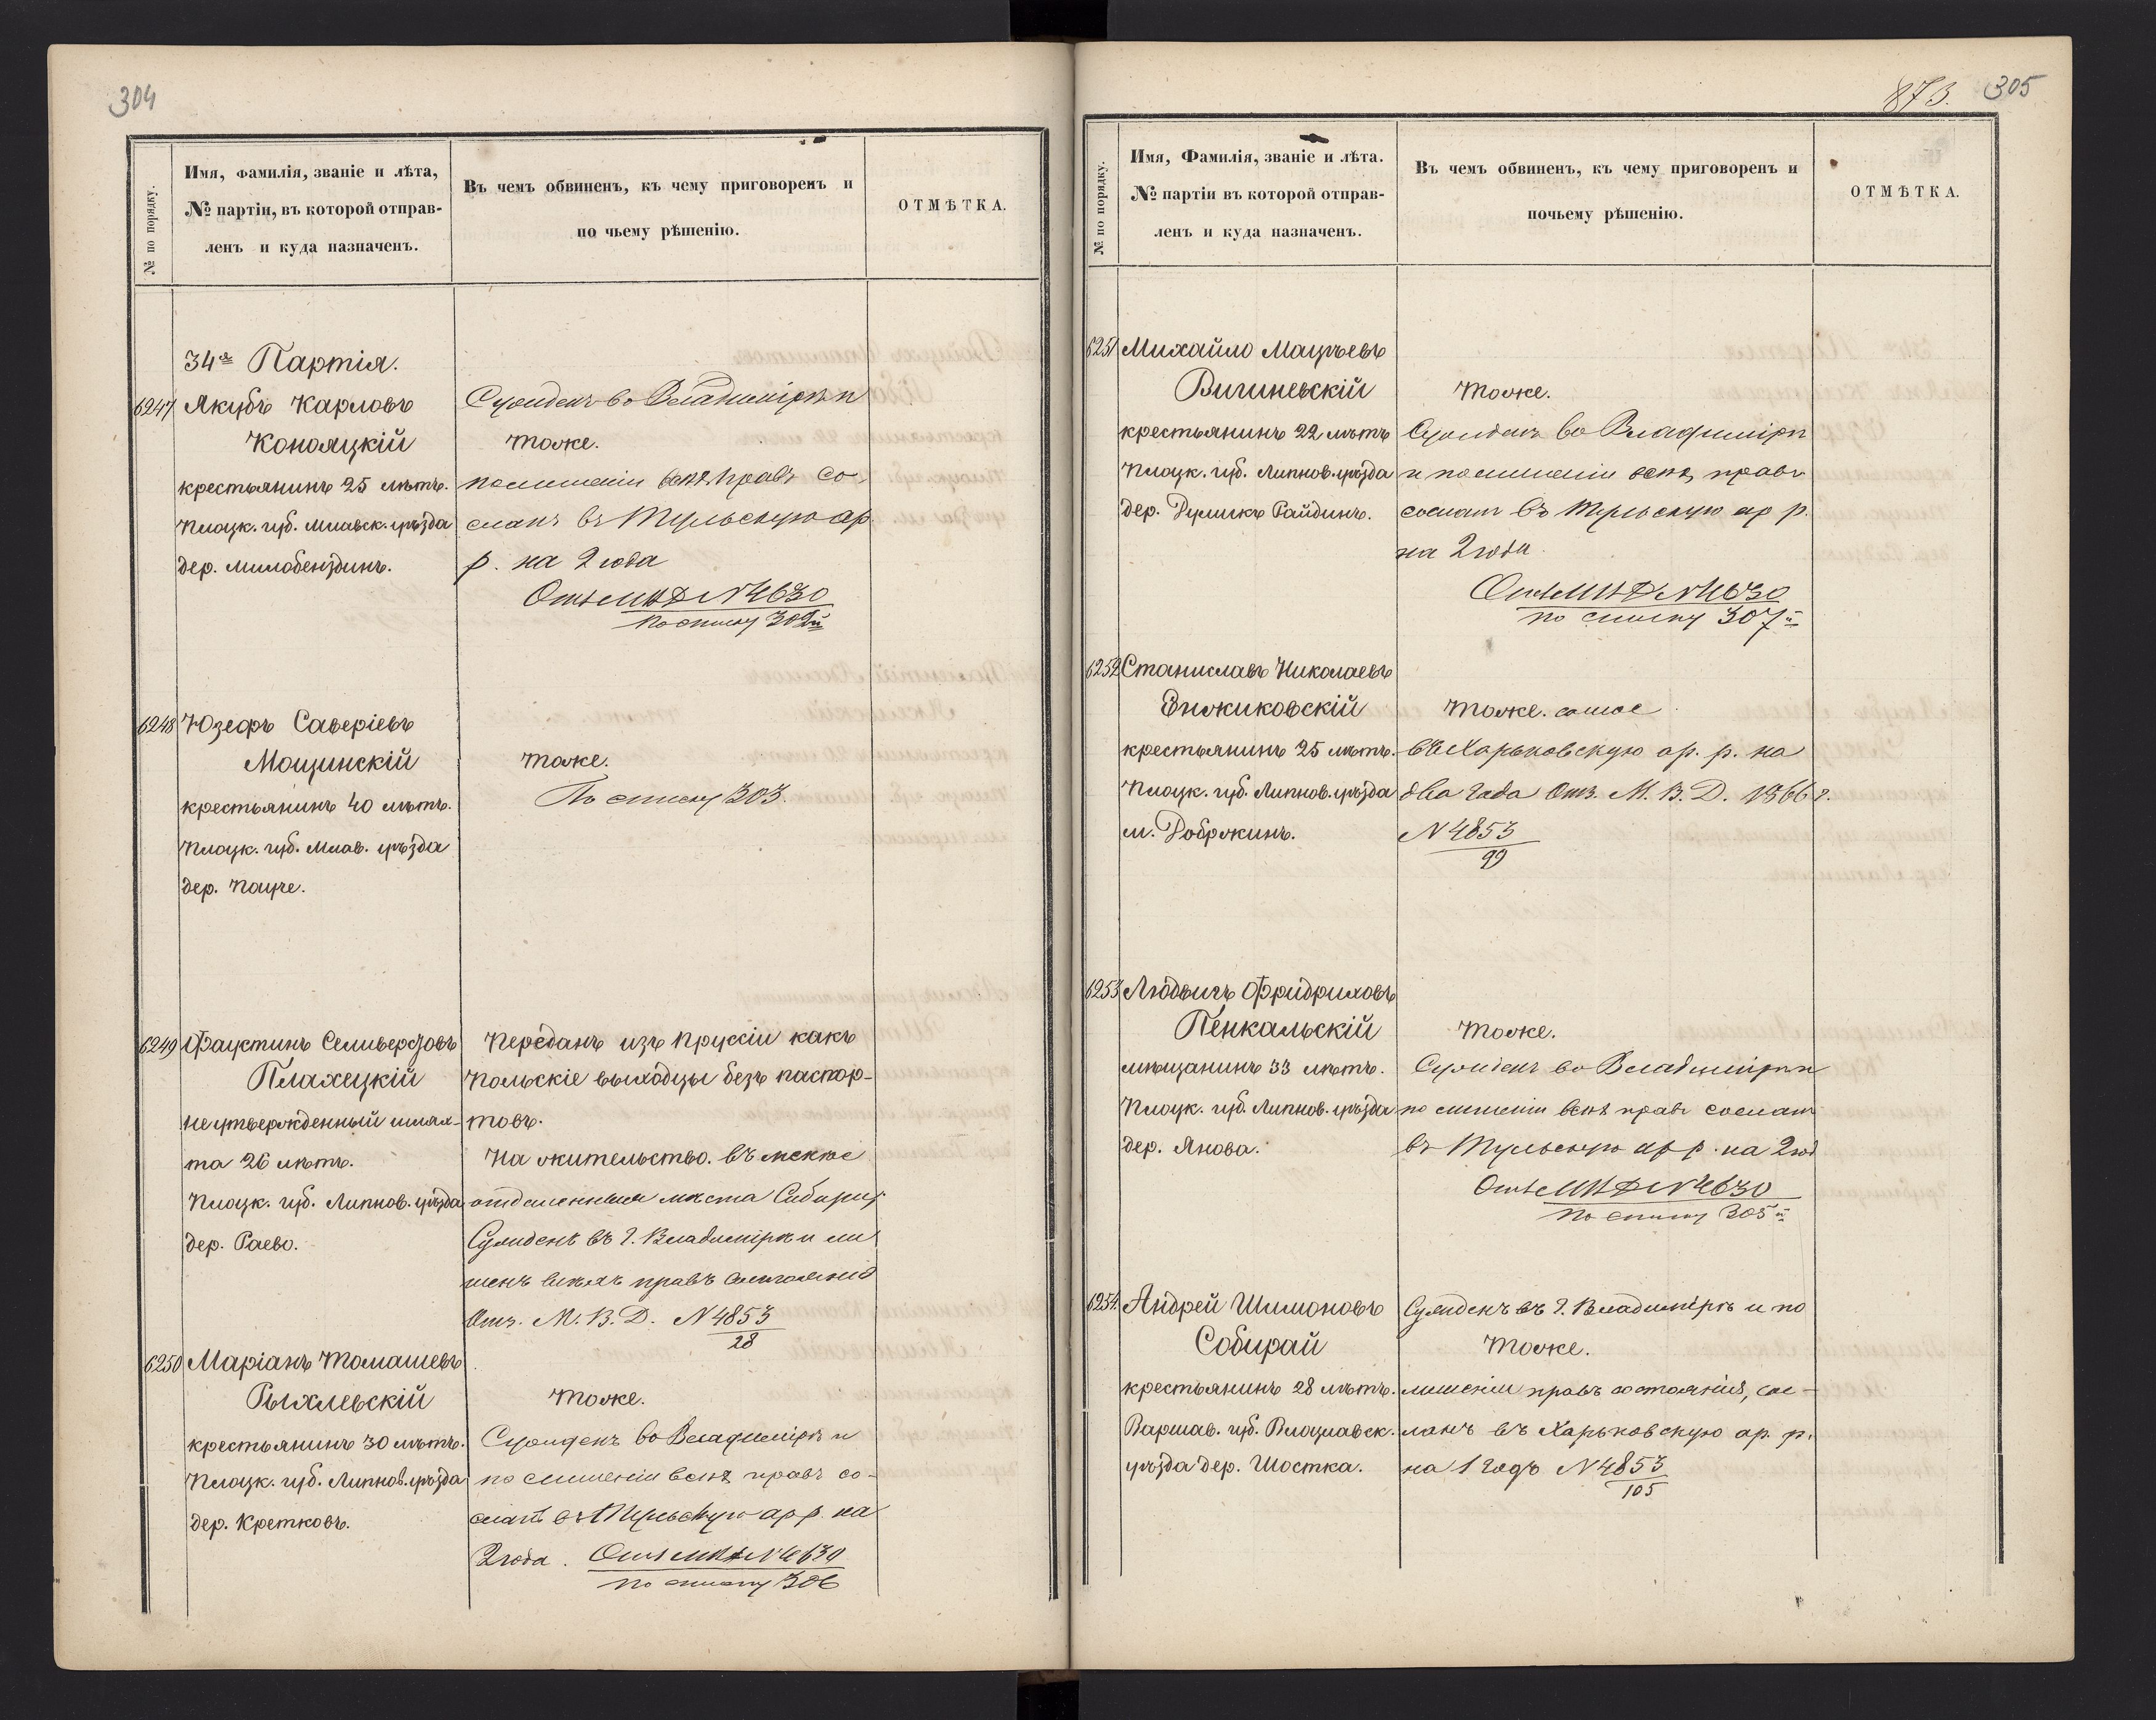 304
№ по порядку.
Имя, фамилія, званіе и лѣта,
№ партіи, въ которой отправ-
ленъ и куда назначенъ.
Въ чемъ обвиненъ, къ чему приговоренъ и
по чьему рѣшенію.
ОТМѢТКА.
34я Партія.
6247 Якубъ Карловъ
Конояцкій
крестьянинъ 25 лѣтъ.
Плоцк. губ. Млавск. уѣзда
дер. Милобендзинъ.
Сужденъ во Владимірѣ и
тоже.
по лишеніи всѣхъ правъ со-
сланъ въ Тульскую ар.
р. на 2 года
Отз МВД N 4630
по списку 302й
6248 Юзефъ Саверіевъ
Мощинскій
крестьянинъ 40 лѣтъ.
Плоцк. губ. Млав. уѣзда
дер. Поцуе.
тоже.
По списку 303.
6249 Фаустинъ Сельверстовъ
Плахецкій
неутвержденный шлях-
та 26 лѣтъ.
Плоцк. губ. Липнов. уѣзда
дер. Раево.
Переданъ изъ Пруссіи какъ
Польскіе выходцы безъ паспор-
товъ.
На жительство. въ менѣе
отдаленныя мѣста Сибири;
Сужденъ въ г. Владимірѣ и ли
шенъ всѣхъ правъ состоянія
Отз. М. В. Д. N 4853
28
6250 Маріанъ Томашевъ
Рыхлевскій
крестьянинъ 30 лѣтъ.
Плоцк. губ. Липнов. уѣзда
дер. Кретковъ.
тоже.
Сужденъ во Владимірѣ и
по лишеніи всѣхъ правъ со-
сланъ въ Тульскую ар р. на
2 года. Отз МВД N 4630
по списку 306
873. 305
№ по порядку.
Имя, Фамилія, званіе и лѣта.
№ партіи въ которой отправ-
ленъ и куда назначенъ.
Въ чемъ обвиненъ, къ чему приговоренъ и
почьему рѣшенію.
ОТМѢТКА.
6251 Михайло Мацѣевъ
Вишневскій
крестьянинъ 22 лѣтъ
Плоцк. губ. Липнов. уѣзда
дер. Райдинъ.
тоже.
Сужденъ во Владимірѣ
и по лишеніи всѣхъ правъ
сосланъ въ Тульскую ар р.
на 2 года.
Отз МВД N 4630
по списку 307й
6252 Станиславъ Николаевъ
крестьянинъ 25 лѣтъ.
Плоцк. губ. Липнов. уѣзда
м. Доброжинъ.
тоже. самое
въ Харьковскую ар. р. на
два года Отз. М. В. Д. 1866 г.
N 4853
99
6253 Людвигъ Фридриховъ
Пенкальскій
мѣщанинъ 33 лѣтъ.
Плоцк. губ. Липнов. уѣзда
дер. Янова.
тоже.
Сужденъ во Владимірѣ и
по лишеніи всѣхъ правъ сосланъ
въ Тульскую ар р. на 2 год
Отз МВД N 4630
по списку 305й
6254. Андрей Шимоновъ
Собирай
крестьянинъ 28 лѣтъ.
Варшав. губ. Влоцлавск.
уѣзда дер. Шостка.
Сужденъ въ г. Владимірѣ и по
тоже.
лишеніи правъ состоянія, сос-
ланъ въ Харьковскую ар. р.
на 1 годъ N 4853
105